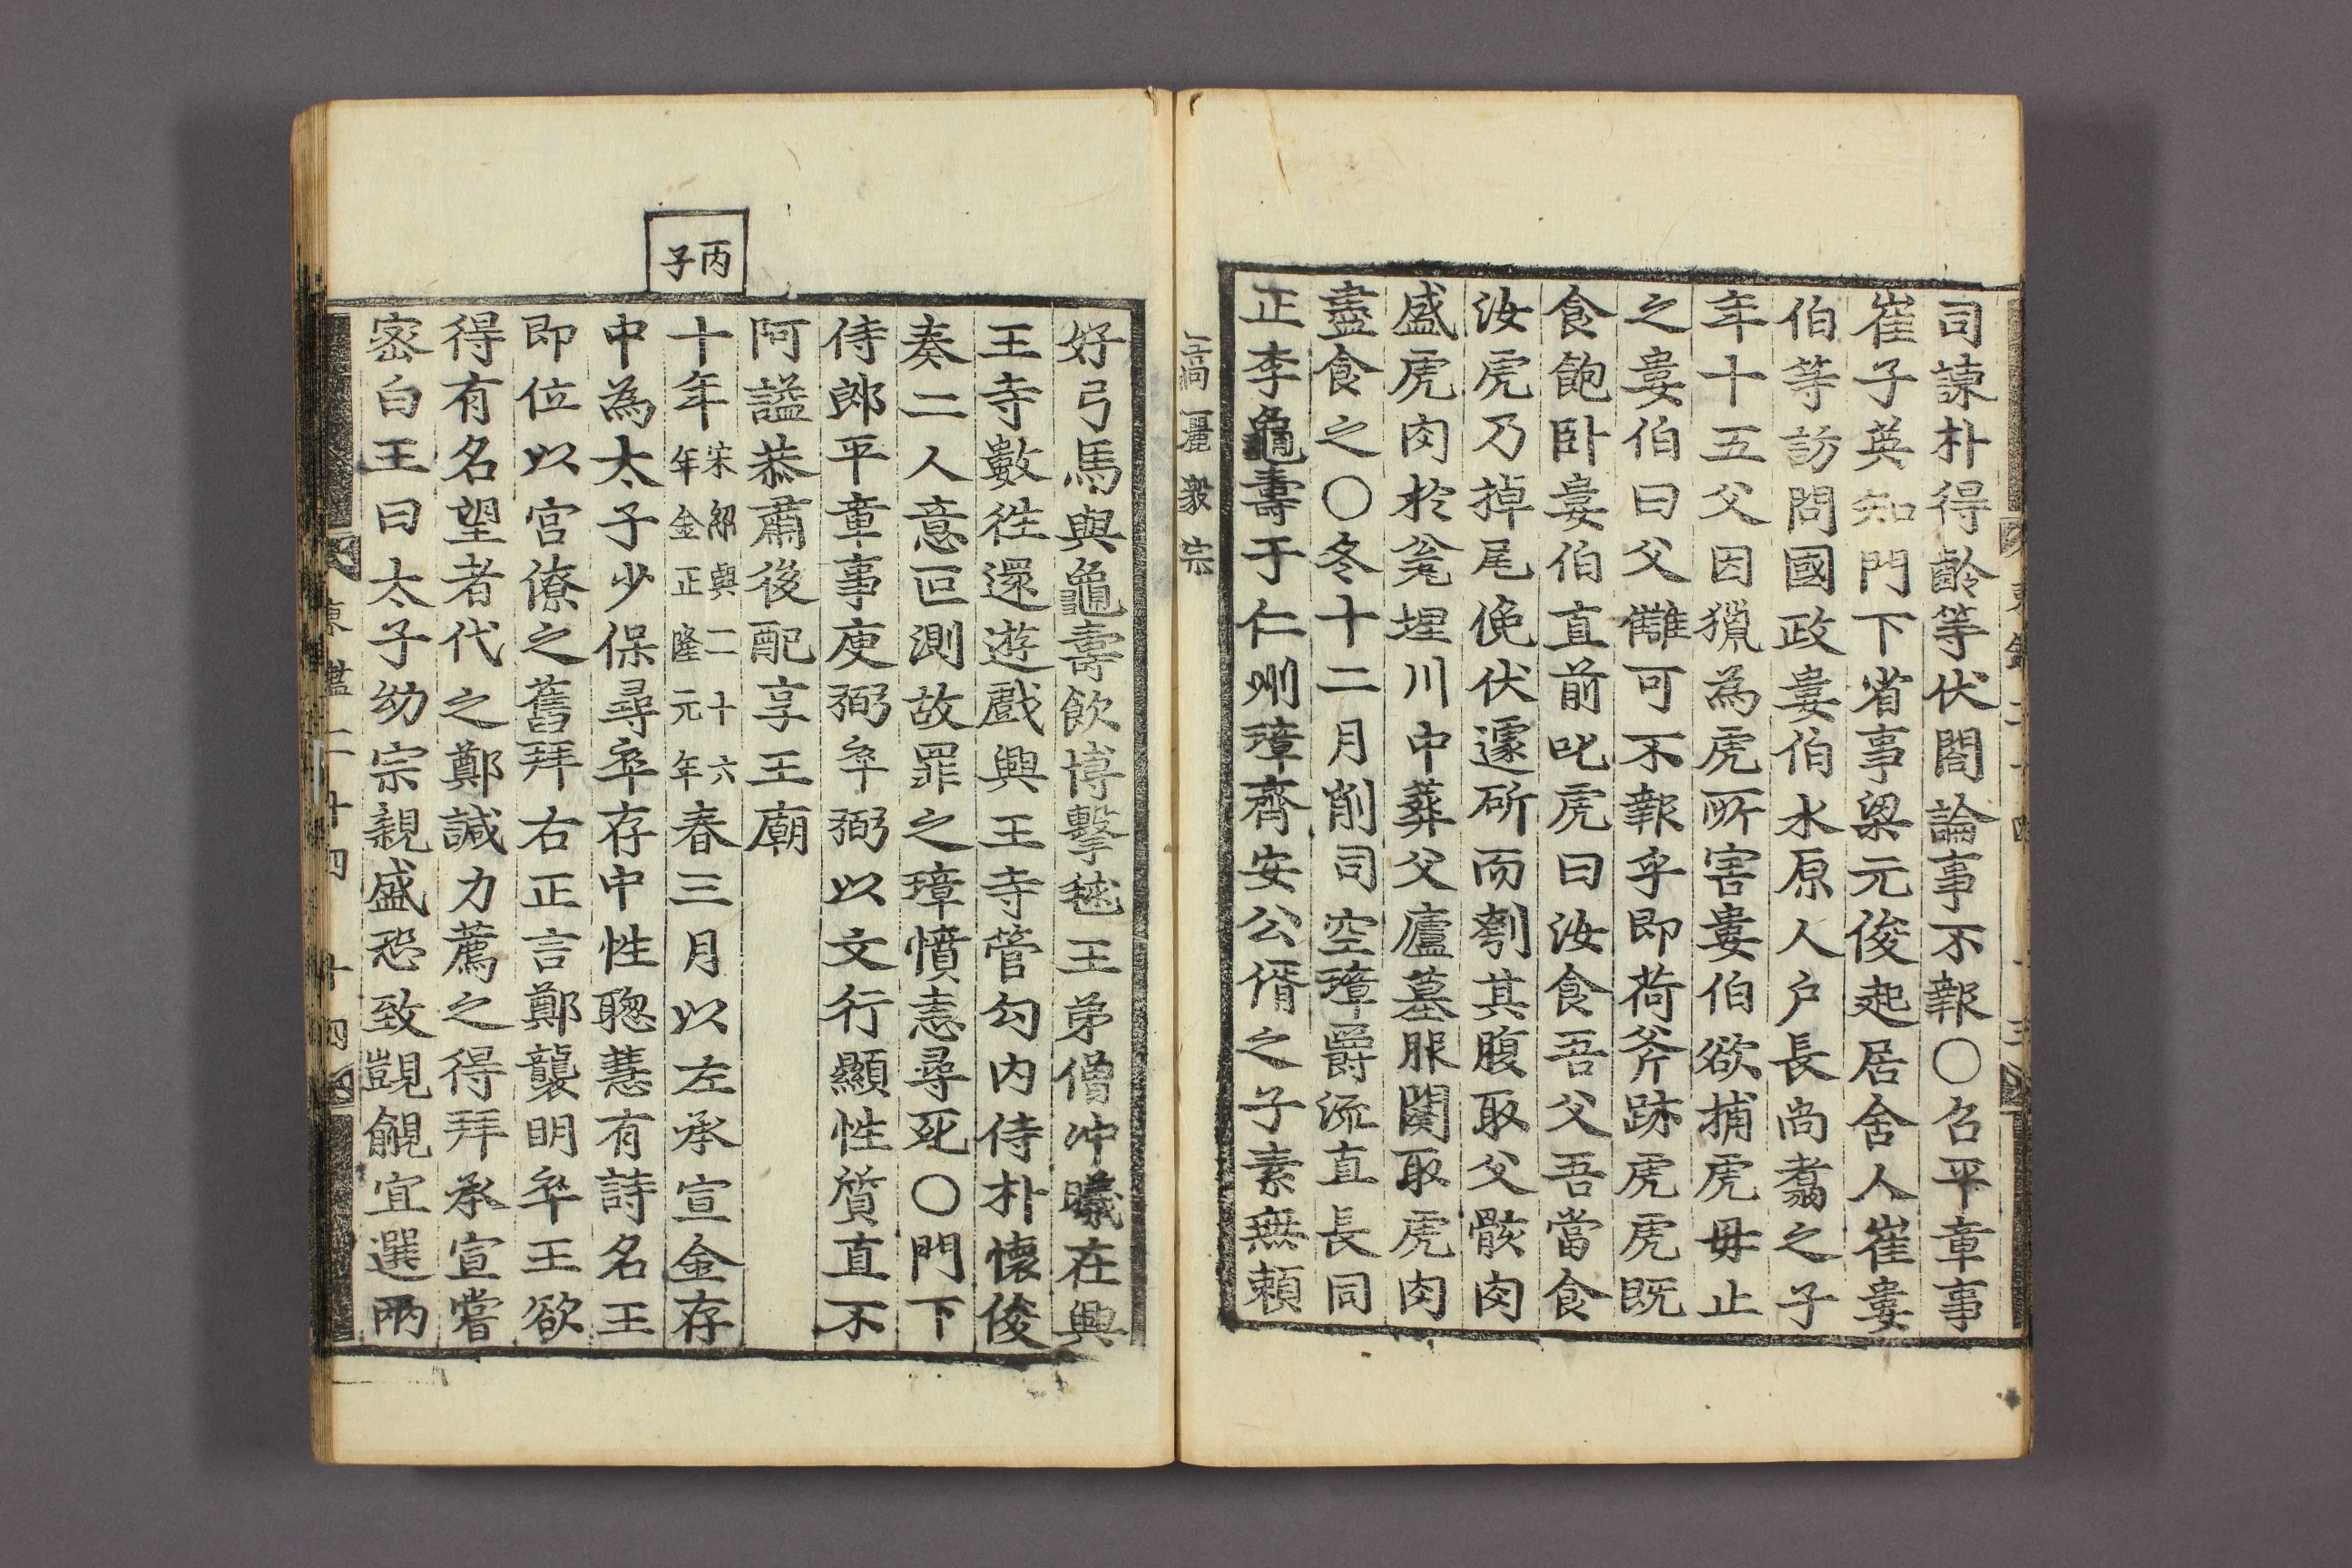 司諫朴得齡等伏閤論事不報○召平章事
崔子英知門下省事梁元俊起居舍人崔婁
伯等訪問國政婁伯水原人戶長尚翥之子
年十五父因獵為虎所害婁伯欲捕虎毋止
之婁伯曰父讎可不報乎即荷斧跡虎虎既
食飽卧婁伯直前叱虎曰汝食吾父吾當食
汝虎乃掉尾俛伏遽斫而刳其腹取父骸肉
盛虎肉於瓮埋川中葬父廬墓服闋取虎肉
盡食之○冬十二月削司空璋爵流直長同
正李龜壽于仁州璋齊安公偦之子素無頼
高麗毅宗
好弓馬與龜壽飮博擊毬王弟僧冲曦在興
王寺數徃還遊戲興王寺管勾內侍朴懷俊
奏二人意叵測故罪之璋憤恚尋死○門下
侍郎平章事庾弼卒弼以文行顯性質直不
阿謚恭肅後配享王廟
丙子
十年宋紹興二十六年金正隆元年春三月以左承宣金存
中為太子少保尋卒存中性聦慧有詩名王
即位以宮僚之舊拜右正言鄭襲明卒王欲
得有名望者代之鄭諴力薦之得拜承宣嘗
密白王曰太子幼宗親盛恐致覬覦宜選兩
東鑑二十四 十四